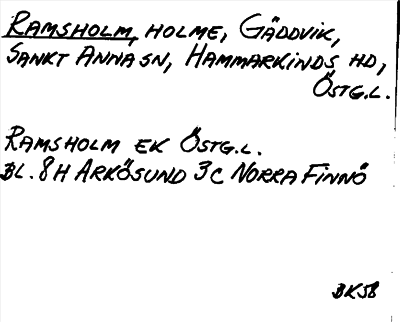 RAMSHOLM, HOLME, GÄDDVIK,
SANKT ANNA SN, HAMMARKINDS HD,
ÖSTG.L.
RAMSHOLM EK ÖSTG.L.
BL. 8H ARKÖSUND 3C NORRA FINNÖ
BK58